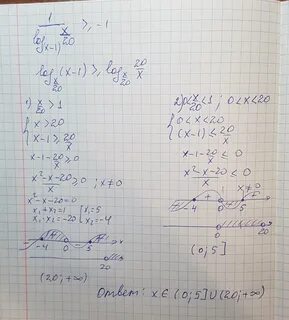 1/log_(x-1) x/20 ≥ -1
log_(x/20) (x-1) ≥ log_(x/20) 20/x
1) x/20 > 1
{ x > 20
x-1 ≥ 20/x
x-1-20/x ≥ 0
x²-x-20/x ≥ 0 ; x≠0
x²-x-20=0
x₁+x₂=1 | x₁=5
x₁·x₂=-20 | x₂=-4
-4 0 5 x
20
(20; +∞)
2) 0 < x/20 < 1 ; 0<x<20
{ 0<x<20
(x-1) ≤ 20/x
x-1-20/x ≤ 0
x²-x-20/x ≤ 0
x≠0
-4 0 5 x
0 20
(0; 5]
Ответ: x ∈ (0; 5] ∪ (20; +∞)